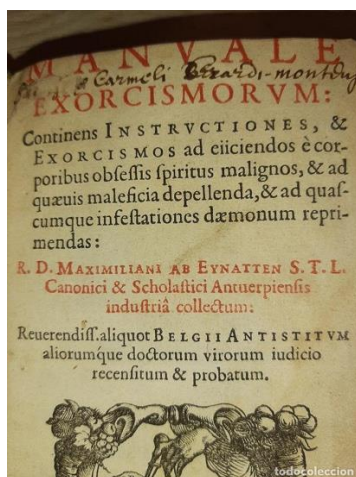 MANVALE
Carmeli
EXORCISMORVM:
Continens INSTRVCTIONES, &
EXORCISMOS ad eiiciendos è cor-
poribus obsessis spiritus malignos, & ad
quæuis maleficia depellenda, & ad quas-
cumque infestationes dæmonum repri-
mendas:
R. D. MAXIMILIANI AB EYNATTEN S. T. L.
Canonici & Scholastici Antuerpiensis
industriâ collectum:
Reuerendiss. aliquot BELGII ANTISTITVM
aliorumque doctorum virorum iudicio
recensitum & probatum.
todocoleccion